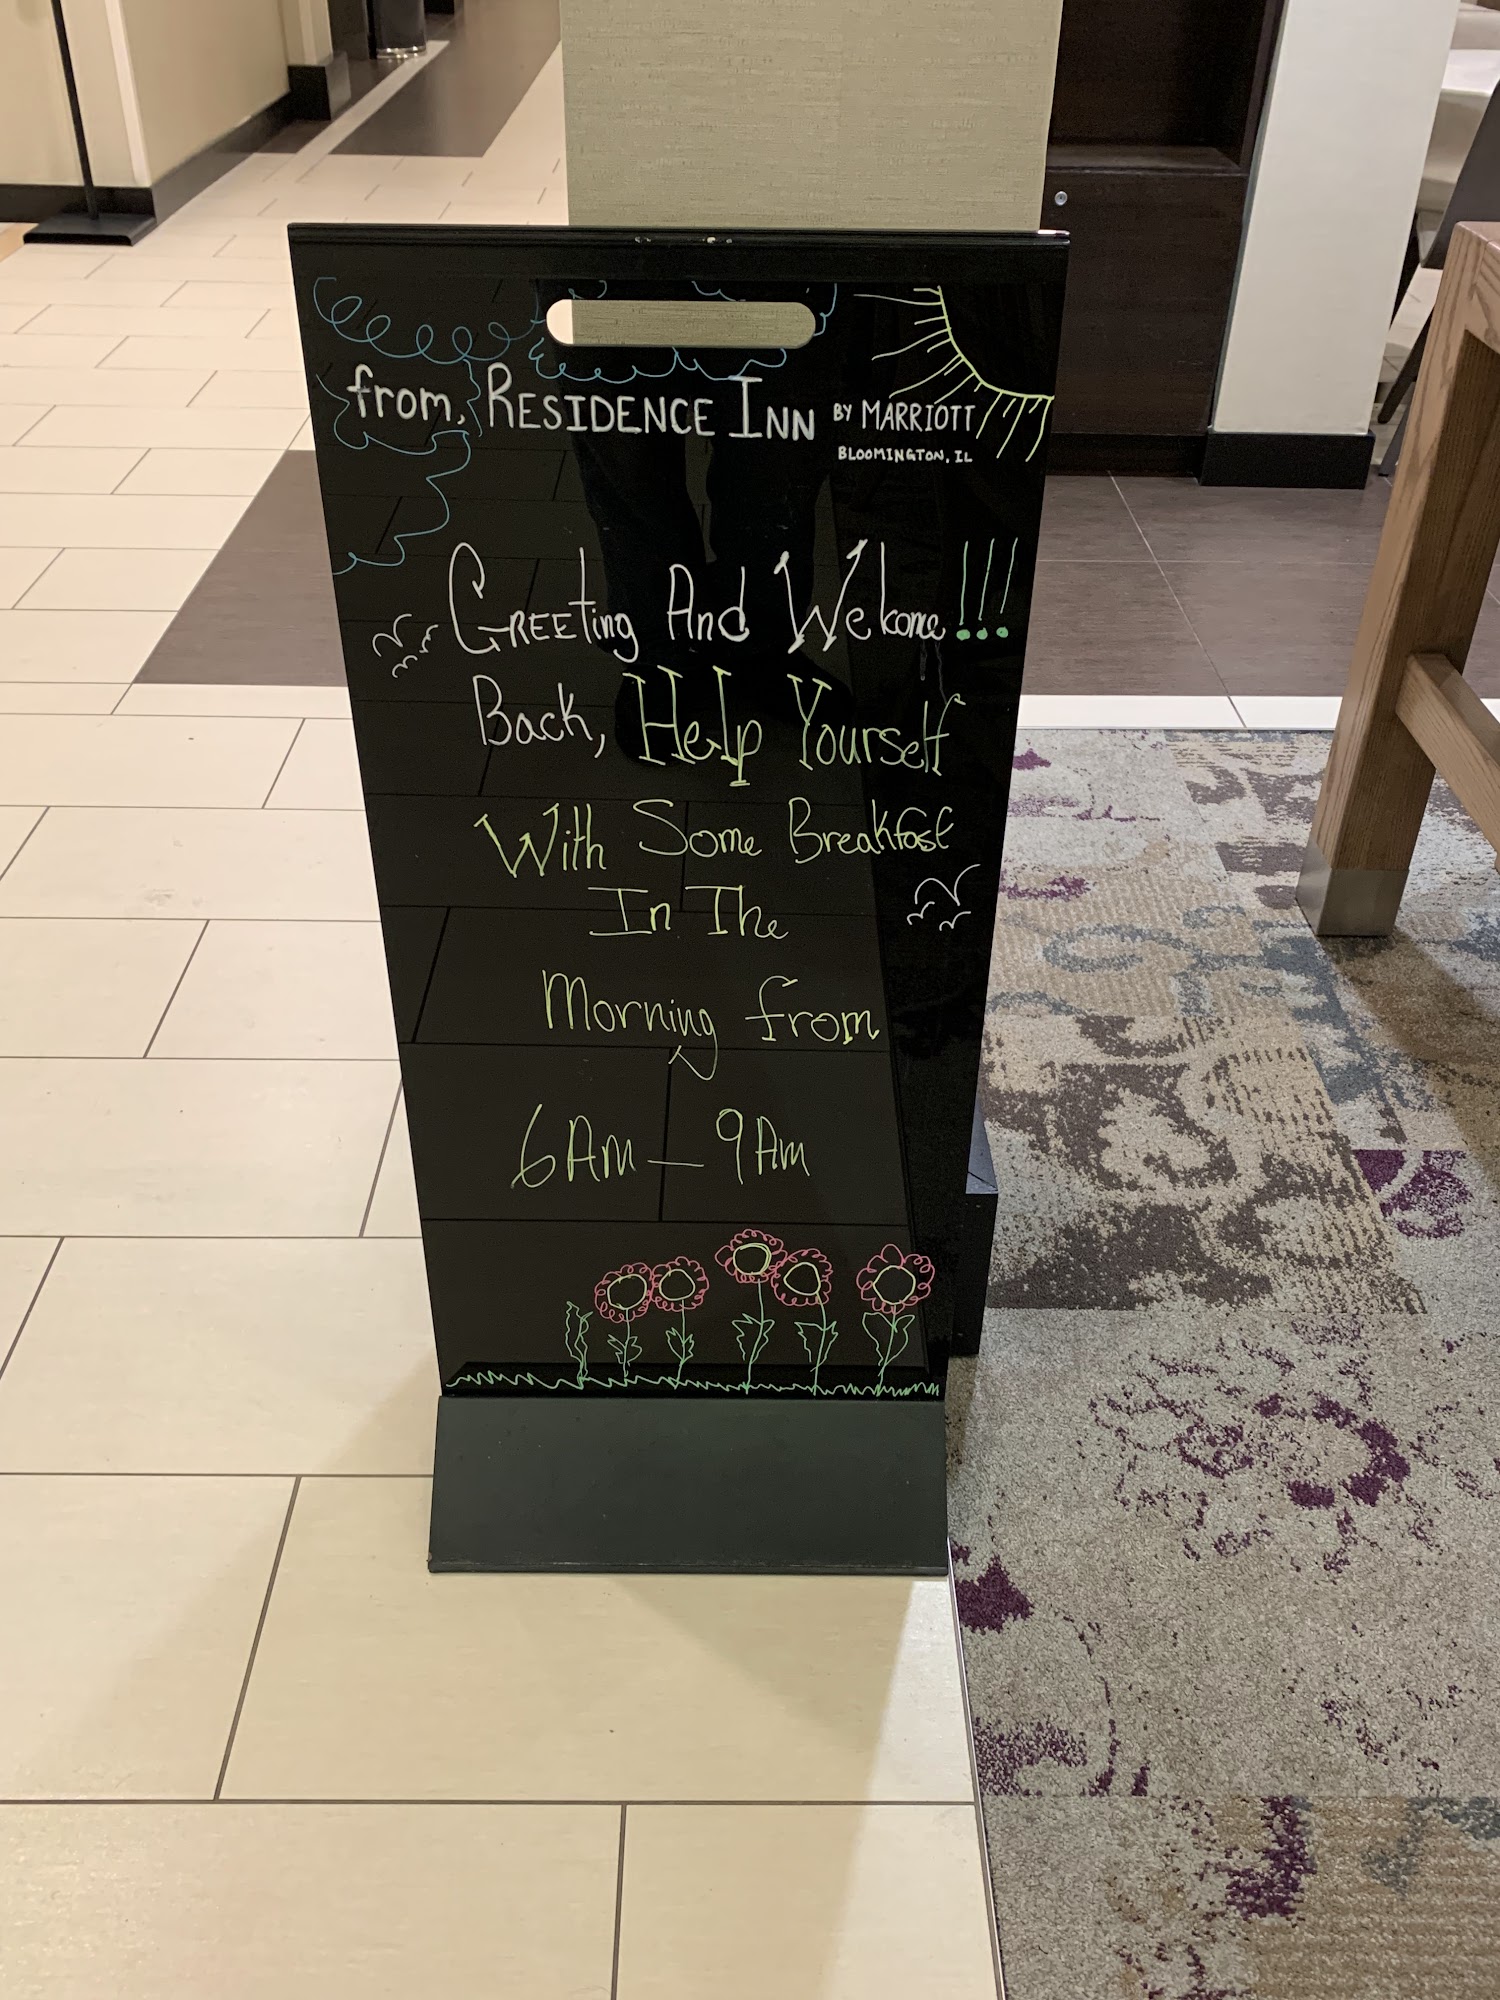 from, RESIDENCE INN BY MARRIOTT
BLOOMINGTON, IL
GREEting And Welcome!!!
Back, Help Yourself
With Some Breakfast
In The
Morning from
6Am - 9Am